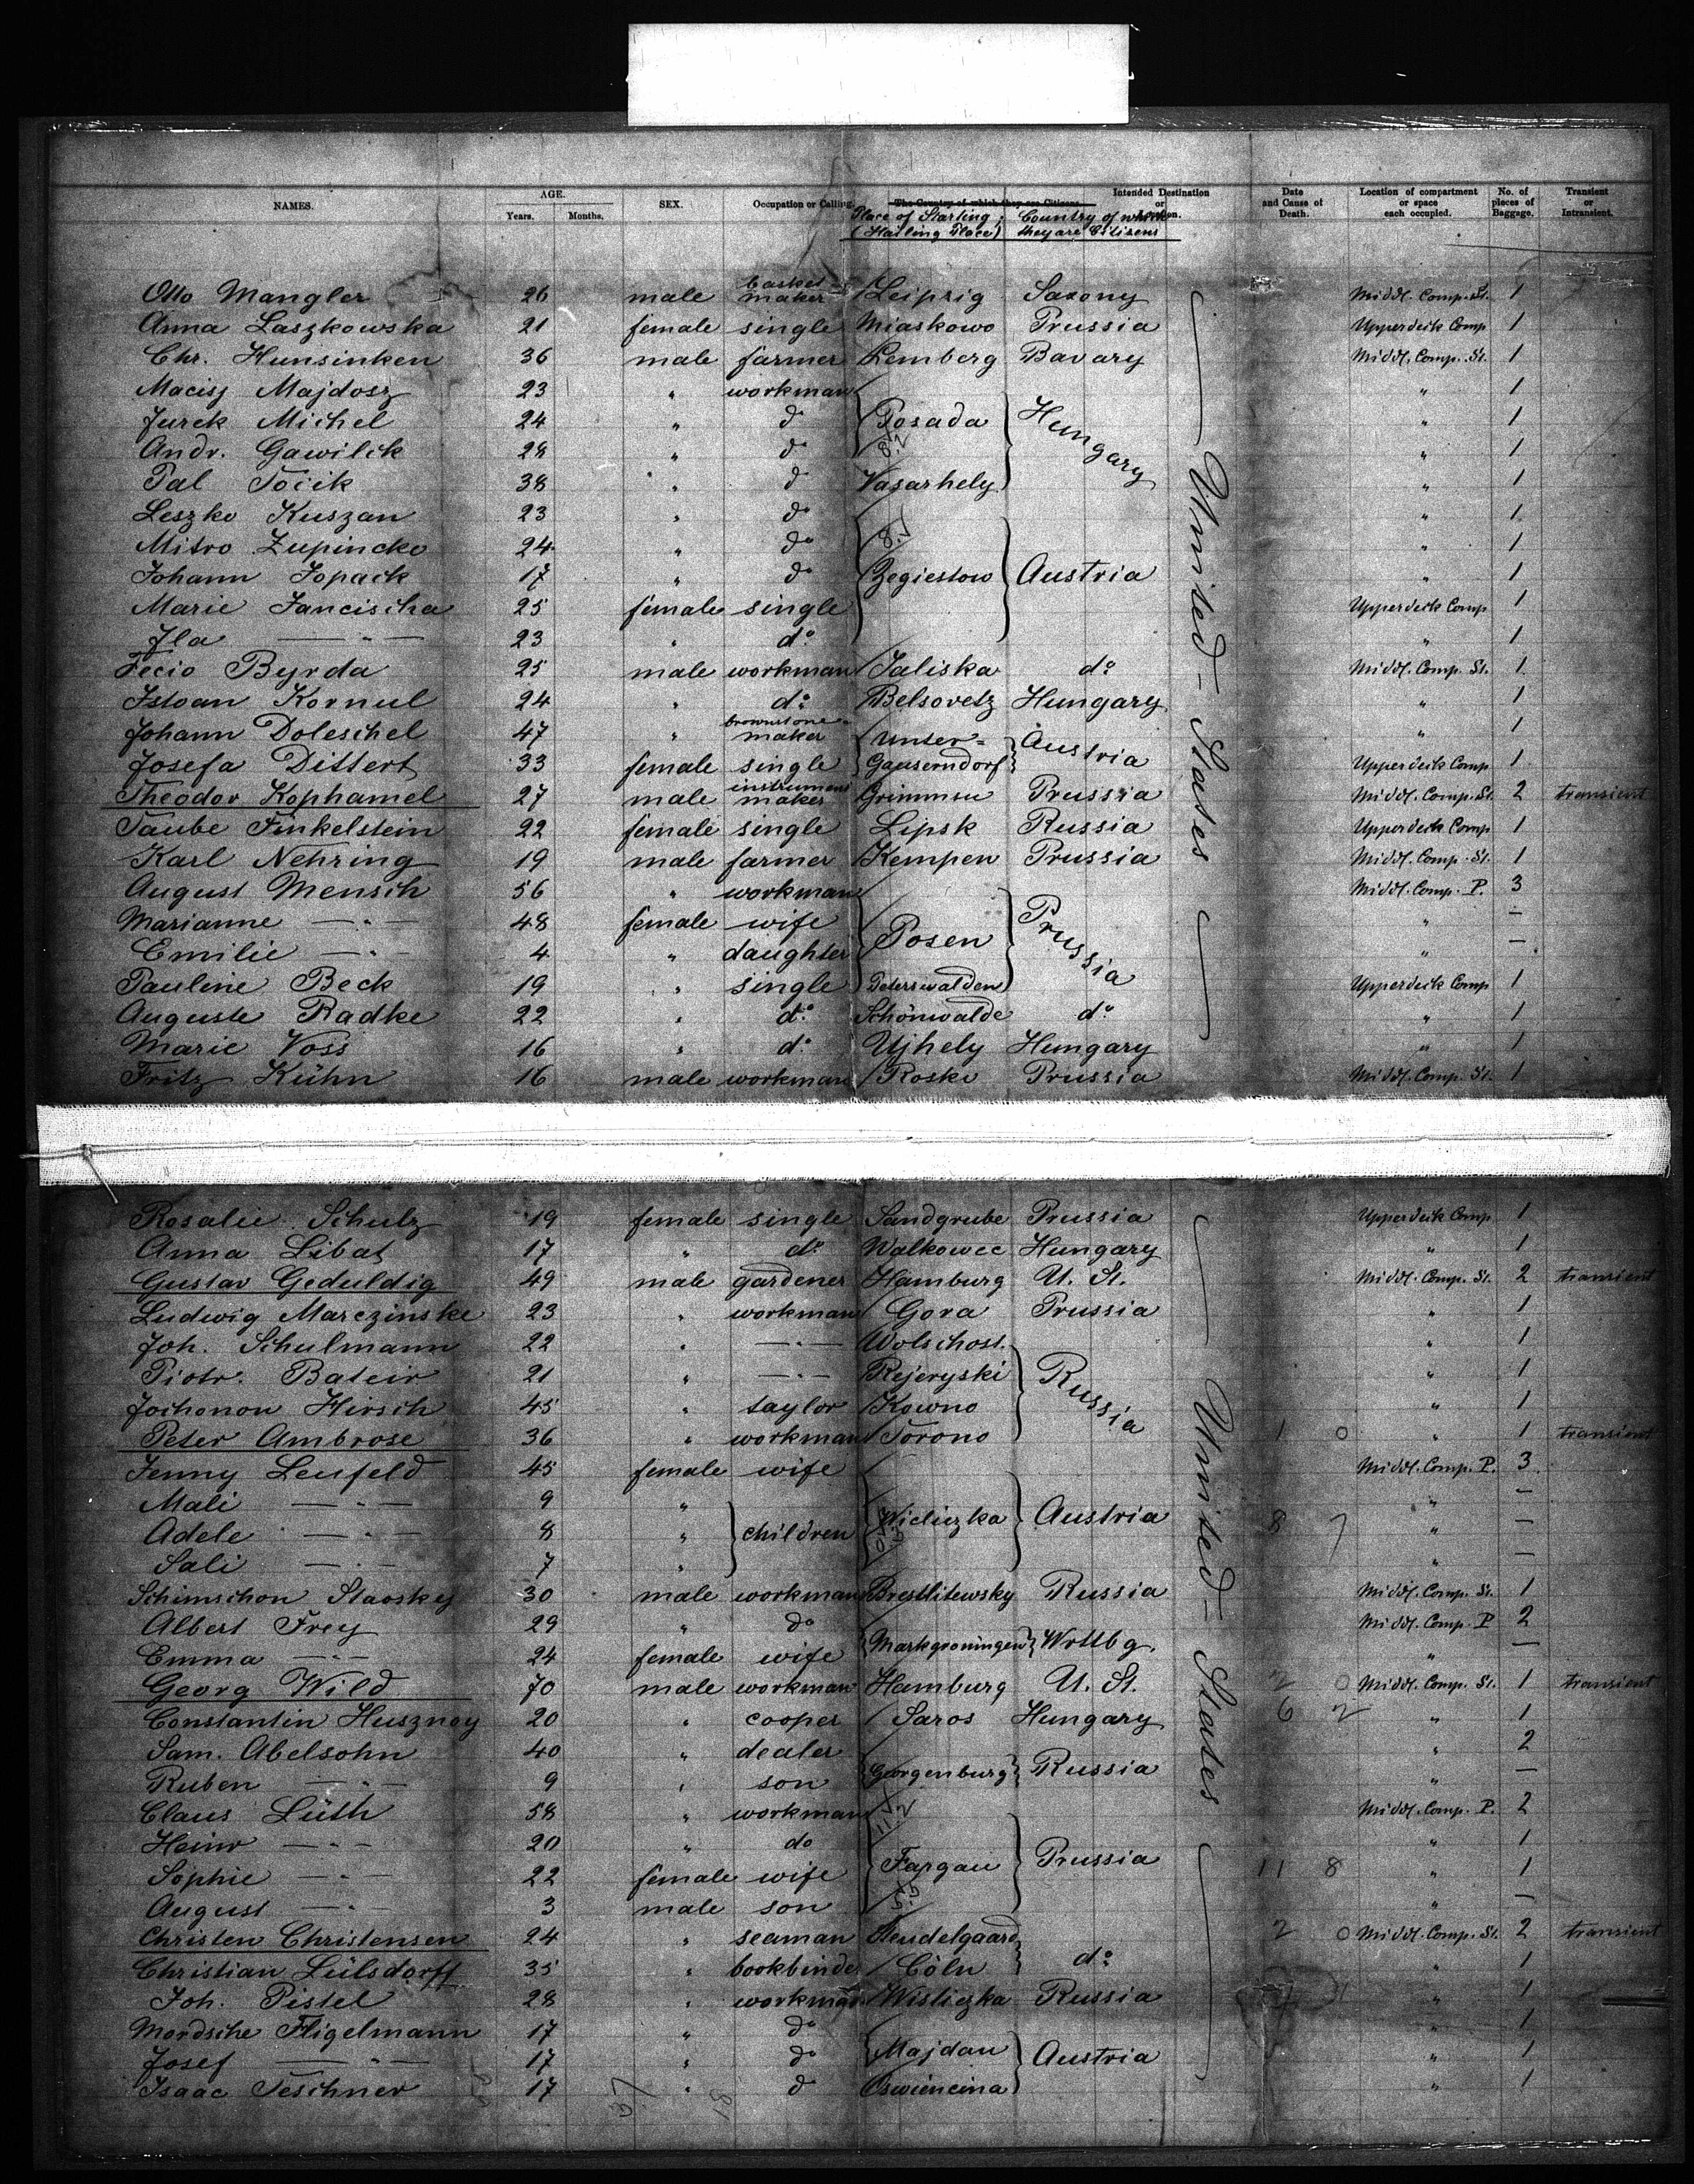 NAMES. AGE. Years. Months. SEX. Occupation or Calling. The Country of which they are Citizens. Intended Destination or Location. Date and Cause of Death. Location of compartment or space each occupied. No. of pieces of Baggage. Transient or Intransient.
Place of Starting; (Hailing Place) Country of which they are Citizens
Otto Mangler 26 male basket maker Leipzig Saxony Middl. Comp. St. 1
Anna Laszkowska 21 female single Miaskowo Prussia Upperdeck Comp 1
Chr. Hunsinken 36 male farmer Lemberg Bavary Middl. Comp. St. 1
Macisj Majdosz 23 " workman " 1
Jurek Michel 24 " do Posada Hungary " 1
Andr. Gawilik 28 " do " 1
Pal Tocik 38 " do Vasarhely " 1
Leszko Kuszan 23 " do " 1
Mitro Zupincko 24 " do " 1
Johann Jopack 17 " do Zegiestow Austria " 1
Marie Jancischa 25 female single Upperdeck Comp 1
Ila — " — 23 " do " 1
Fecio Byrda 25 male workman Jaliska do Middl. Comp. St. 1
Istvan Kornul 24 " do Belsovetz Hungary " 1
Johann Doleschel 47 " brownstone maker Unter- Austria " 1
Josefa Dittert 33 female single Gauserndorf Upperdeck Comp 1
Theodor Kophamel 27 male instrument maker Grimmen Prussia Middl. Comp. St. 2 transient
Taube Finkelstein 22 female single Lipsk Russia Upperdeck Comp 1
Karl Nehring 19 male farmer Kempen Prussia Middl. Comp. St. 1
August Mensch 56 " workman Middl. Comp. P. 3
Marianne — " — 48 female wife Posen Prussia " —
Emilie — " — 4 " daughter " —
Pauline Beck 19 " single Peterswalden Upperdeck Comp 1
Auguste Radke 22 " do Schönwalde do " 1
Marie Voss 16 " do Ujhely Hungary " 1
Fritz Kühn 16 male workman Roski Prussia Middl. Comp. St. 1
United-States
Rosalie Schulz 19 female single Sandgrube Prussia Upperdeck Comp 1
Anna Libat 17 " do Walkowec Hungary " 1
Gustav Geduldig 49 male gardener Hamburg U. St. Middl. Comp. St. 2 transient
Ludwig Marczinske 23 " workman Gora Prussia " 1
Joh. Schulmann 22 " — " — Wolschost. " 1
Piotr. Bateir 21 " — " — Rejeryski Russia " 1
Jochonon Hirsch 45 " taylor Kowno " 1
Peter Ambrose 36 " workman Torono 1 0 " 1 transient
Jenny Leufeld 45 female wife Middl. Comp. P. 3
Mali — " — 9 " " —
Adele — " — 8 " children Wieliczka Austria 8 7 " —
Sali — " — 7 " " —
Schimschon Staosky 30 male workman Brestlitewsky Russia Middl. Comp. St. 1
Albert Frey 29 " do Markgroningen Wrttbg. Middl. Comp. P 2
Emma — " — 24 female wife " —
Georg Wild 70 male workman Hamburg U. St. 2 0 Middl. Comp. St. 1 transient
Constantin Husznoy 20 " cooper Saros Hungary 6 2 " 1
Sam. Abelsohn 40 " dealer Georgenburg Russia " 2
Ruben — " — 9 " son " —
Claus Lüth 58 " workman Middl. Comp. P. 2
Heinr — " — 20 " do " 1
Sophie — " — 22 female wife Fargau Prussia 11 8 " 1
August — " — 3 male son " —
Christen Christensen 24 " seaman Steudelgaard 2 0 Middl. Comp. St. 2 transient
Christian Lülsdorff 35 " bookbinder Cöln do " 1
Joh. Pistel 28 " workman Wisliczka Russia " 1
Mordsche Fligelmann 17 " do " 1
Josef — " — 17 " do Majdan Austria " 1
Isaac Teschner 17 " d Oswiencina " 1
United-States